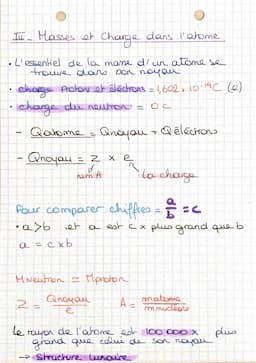 III - Masses et Charge dans l'atome
• L'essentiel de la masse d'un atome se
trouve dans son noyau
• charge Proton et électrons = 1,602 x 10⁻¹⁹C (e)
• charge du neutron = 0C
- Qatome = Qnoyau + Qélectrons
- Qnoyau = Z x e
num A La charge
Pour comparer chiffres = a/b = c
• a>b et a est c x plus grand que b
a = c x b
Mneutron ≃ Mproton
Z = Qnoyau/e A = matome/mnucléons
Le rayon de l'atome est 100 000 x plus
grand que celui de son noyau
→ Structure lunaire